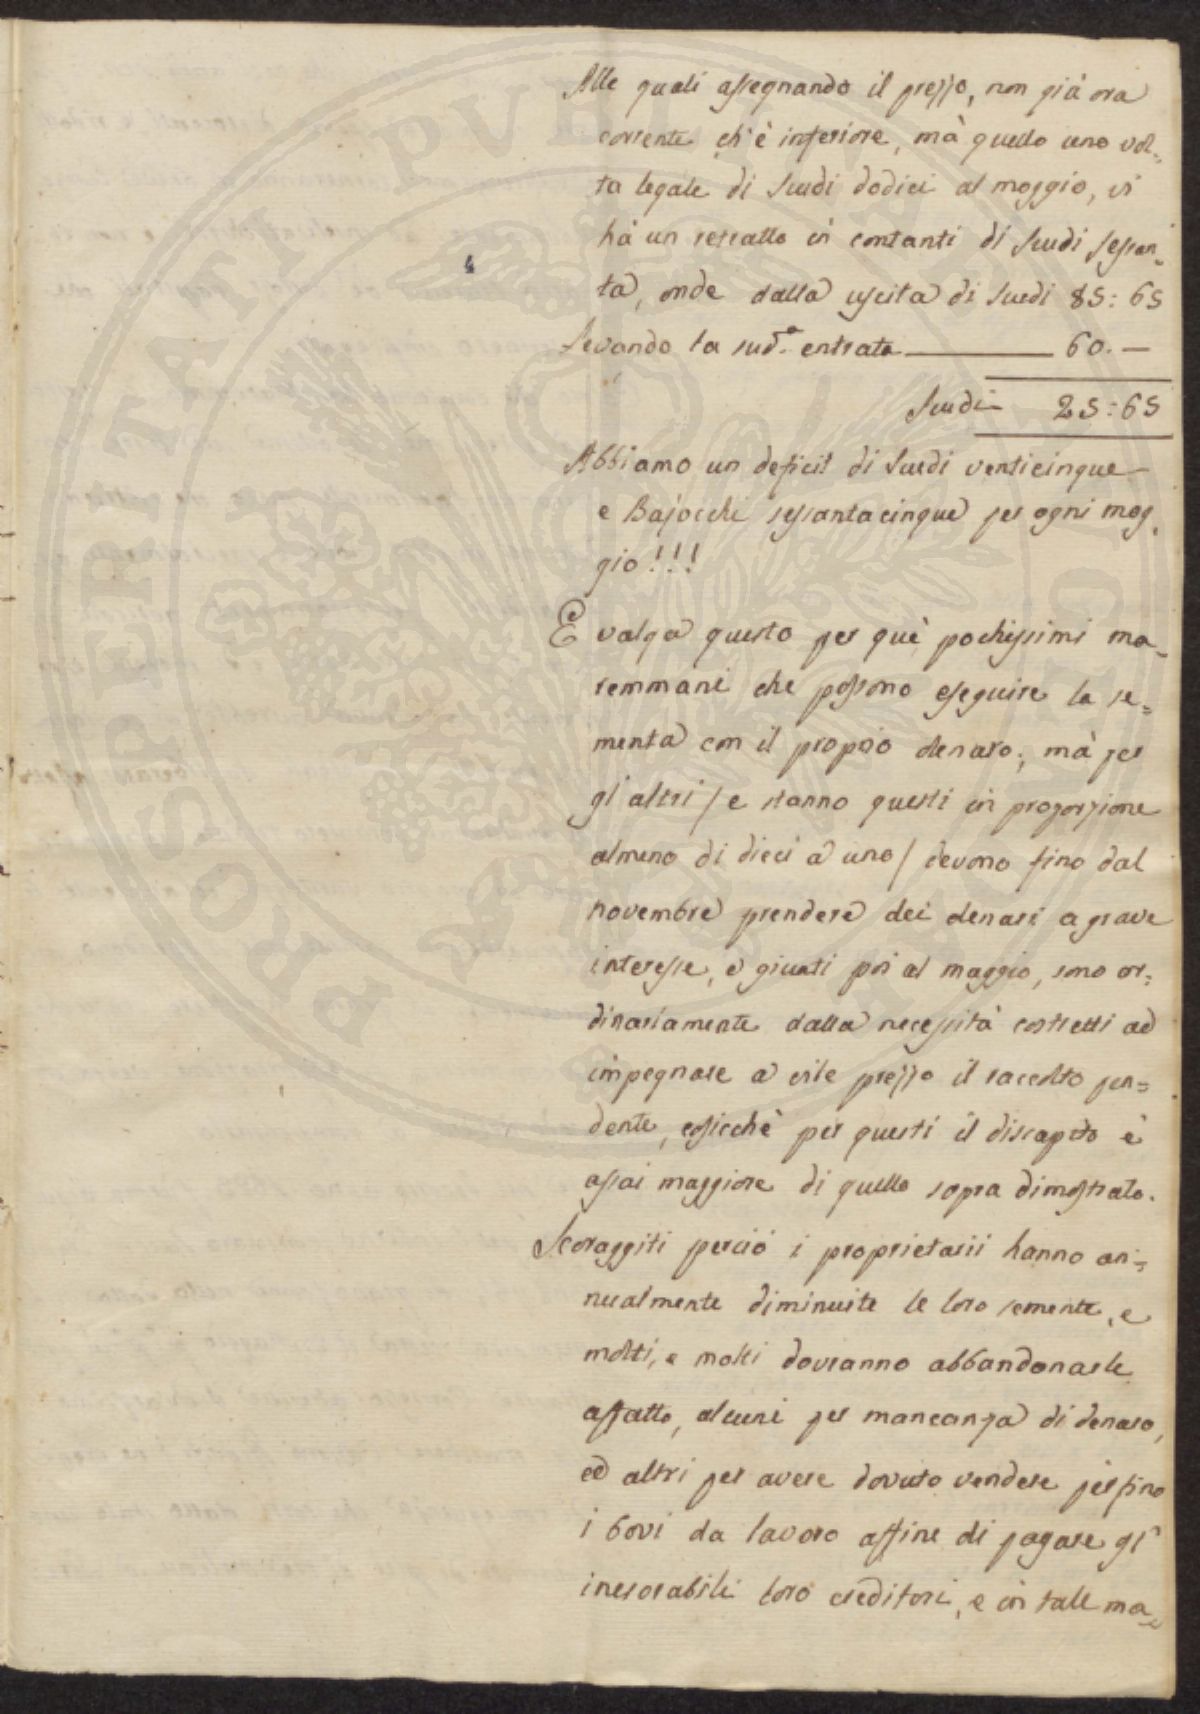 PROSPERITATI PUBLICAE
4
Alle quali assegnando il prezzo, non già ora
corrente ch'è inferiore, mà quello una vol=
ta legale di Scudi dodici al moggio, si
hà un retratto in contanti di Scudi sessan=
ta, onde dalla uscita di Scudi 85:65
Levando la sud.ª entrata 60.—
Scudi 25:65
Abbiamo un deficit di Scudi venticinque
e Bajocchi sessantacinque per ogni mog=
gio!!!
E valga questo per què pochissimi ma=
remmani che possono eseguire la se=
menta con il proprio denaro; mà per
gl'altri / e stanno questi in proporzione
almeno di dieci a uno / devono fino dal
novembre prendere dei denari a grave
interesse, e giunti poi al maggio, sono or=
dinariamente dalla necessità costretti ad
impegnare a vile prezzo il raccolto pen=
dente, cosicchè per questi il discapito è
assai maggiore di quello sopra dimostrato.
Scoraggiti perciò i proprietarii hanno an=
nualmente diminuite le loro semente, e
molti, e molti dovranno abbandonarle
affatto, alcuni per mancanza di denaro,
ed altri per avere dovuto vendere perfino
i bovi da lavoro affine di pagare gl'
inesorabili loro creditori, e in tale ma=